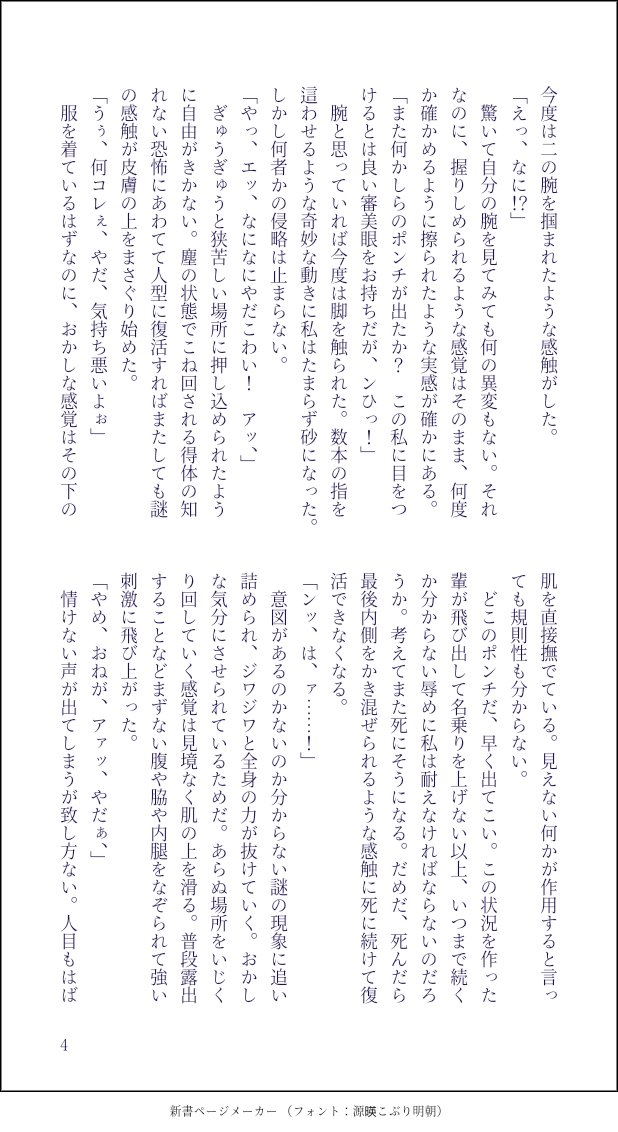 今度は二の腕を掴まれたような感触がした。
「えっ、なに!?」
　驚いて自分の腕を見てみても何の異変もない。それ
なのに、握りしめられるような感覚はそのまま、何度
か確かめるように擦られたような実感が確かにある。
「また何かしらのポンチが出たか？　この私に目をつ
けるとは良い審美眼をお持ちだが、ンひっ！」
　腕と思っていれば今度は脚を触られた。数本の指を
這わせるような奇妙な動きに私はたまらず砂になった。
しかし何者かの侵略は止まらない。
「やっ、エッ、なになにやだこわい！　アッ、」
　ぎゅうぎゅうと狭苦しい場所に押し込められたよう
に自由がきかない。塵の状態でこね回される得体の知
れない恐怖にあわてて人型に復活すればまたしても謎
の感触が皮膚の上をまさぐり始めた。
「うぅ、何コレぇ、やだ、気持ち悪いよぉ」
　服を着ているはずなのに、おかしな感覚はその下の
肌を直接撫でている。見えない何かが作用すると言っ
ても規則性も分からない。
　どこのポンチだ、早く出てこい。この状況を作った
輩が飛び出して名乗りを上げない以上、いつまで続く
か分からない辱めに私は耐えなければならないのだろ
うか。考えてまた死にそうになる。だめだ、死んだら
最後内側をかき混ぜられるような感触に死に続けて復
活できなくなる。
「ンッ、は、ァ……！」
　意図があるのかないのか分からない謎の現象に追い
詰められ、ジワジワと全身の力が抜けていく。おかし
な気分にさせられているためだ。あらぬ場所をいじく
り回していく感覚は見境なく肌の上を滑る。普段露出
することなどまずない腹や脇や内腿をなぞられて強い
刺激に飛び上がった。
「やめ、おねが、アァッ、やだぁ、」
　情けない声が出てしまうが致し方ない。人目もはば
4
新書ページメーカー（フォント：源暎こぶり明朝）